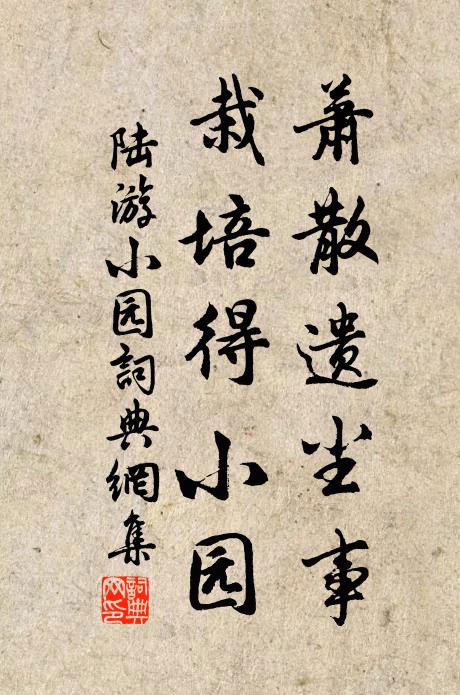 萧散遗尘事
栽培得小园
陆游小园詞典網集
詞典网印